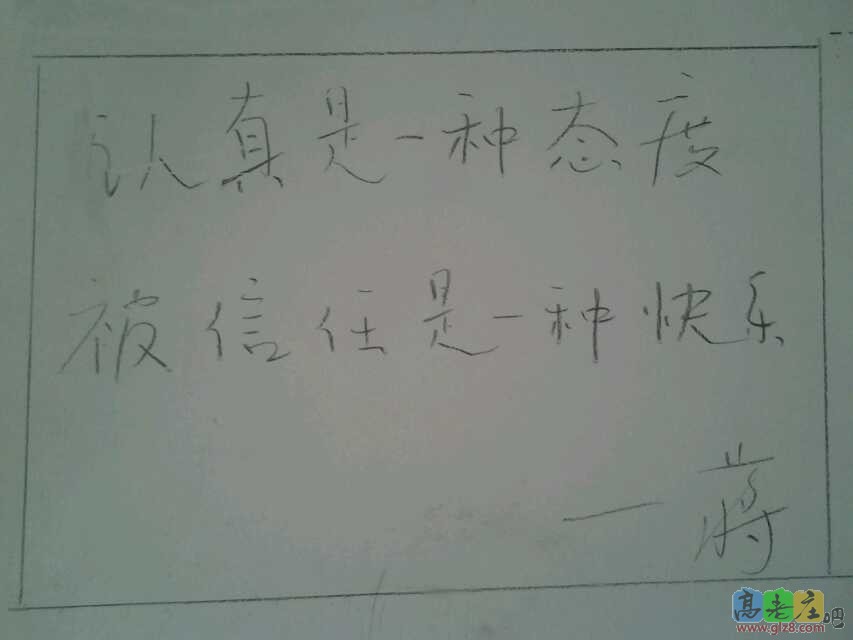 认真是一种态度
被信任是一种快乐
一蒋
高老庄吧
www.glz8.com